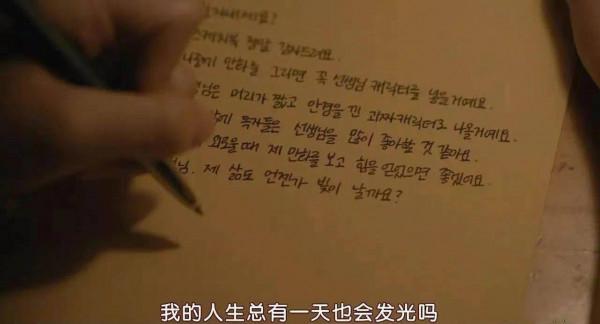 스케치북 정말 감사드려요.
만화를 그리면 꼭 선생님 캐릭터를 넣을거예요.
머리가 짧고 안경을 낀 괴짜캐릭터로 나올거예요.
독자들은 선생님을 많이 좋아할 것 같아요.
외로울 때 제 만화를 보고 힘을 얻었으면 좋겠어요.
제 삶도 언젠가 빛이 날까요?
我的人生总有一天也会发光吗